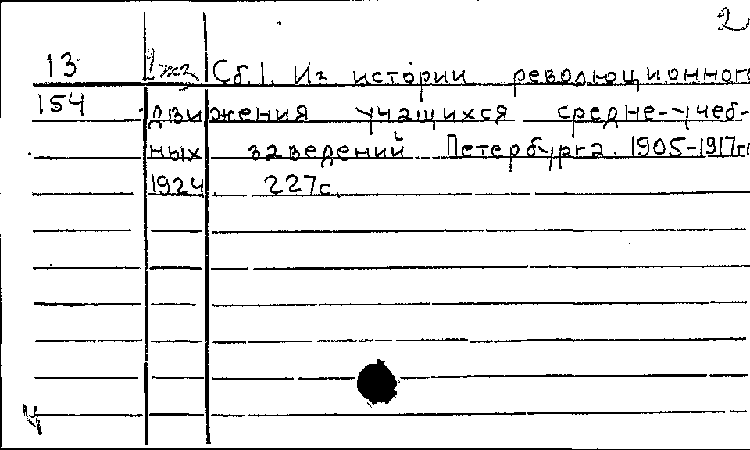 2
13 1 экз Сб.1. Из истории революционного
154 движения учащихся средне-учеб-
ных заведений Петербурга. 1905-1917гг
1924. 227с.
Ч